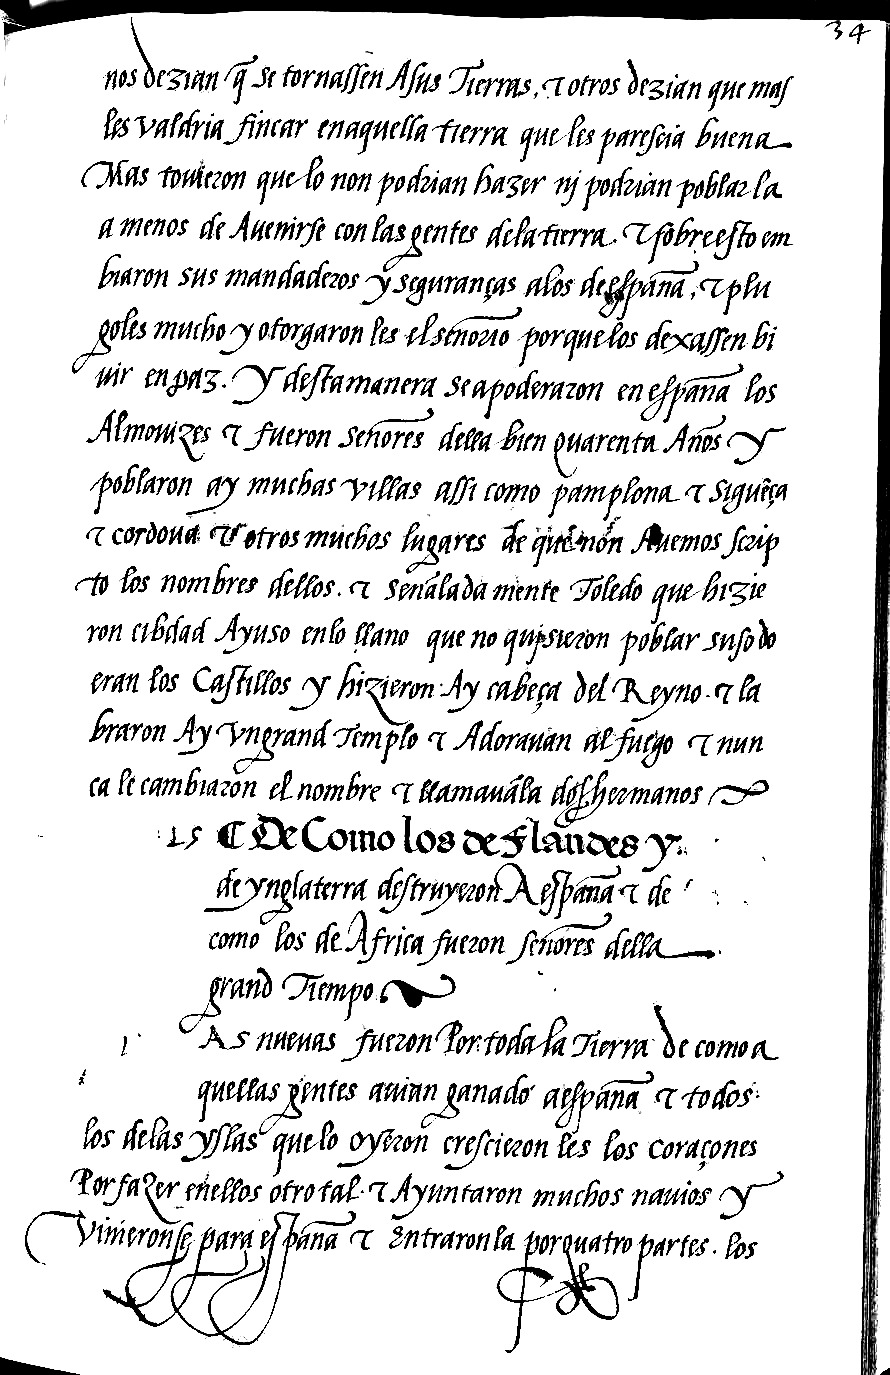 34
nos dezian q̃ se tornassen Asus Tierras, τ otros dezian que mas
les valdria fincar enaquella tierra que les parescia buena
Mas touieron que lo non podrian hazer nj podrian poblar la
a menos de Auenirse con las gentes dela tierra. τ sobre esto em
biaron sus mandaderos y seguranças alos de españa, τ plu
goles mucho y otorgaron les el señorio porque los dexassen bi
uir en paz. Y desta manera se apoderaron en españa los
Almouizes τ fueron señores della bien quarenta Años Y
poblaron ay muchas villas assi como pamplona τ siguẽça
τ cordoua τ otros muchos lugares de que non Auemos scrip
to los nombres dellos. τ señalada mente Toledo que hizie
ron cibdad Ayuso enlo llano que no quisieron poblar suso do
eran los Castillos y hizieron Ay cabeça del Reyno. τ la
braron Ay Vngrand Templo τ Adorauan al fuego τ nun
ca le cambiaron el nombre τ llamauãla dos hermanos
15 ¶ De Como los de Flandes y
de ynglaterra destruyeron A españa τ de
como los de Africa fueron señores della
grand Tiempo
As nueuas fueron Por toda la Tierra de como a
quellas gentes auian ganado aespaña τ todos
los delas yslas que lo oyeron crescieron les los coraçones
Por fazer enellos otro tal τ Ayuntaron muchos nauios Y
Vinieronse para españa τ Entraronla por quatro partes. los